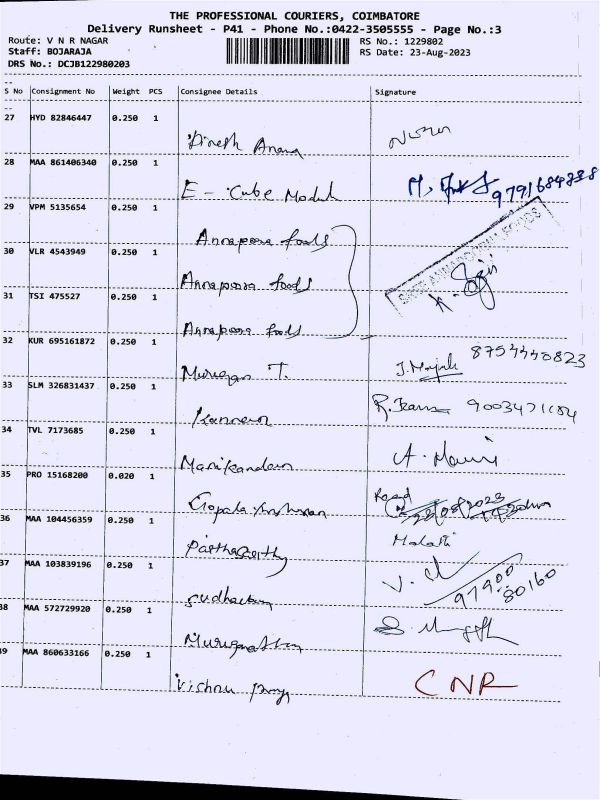 THE PROFESSIONAL COURIERS, COIMBATORE
Delivery Runsheet - P41 - Phone No.:0422-3505555 - Page No.:3
Route: V N R NAGAR
RS No.: 1229802
Staff: BOJARAJA
RS Date: 23-Aug-2023
DRS No.: DCJB122980203
S No Consignment No Weight PCS Consignee Details Signature
27 HYD 82846447 0.250 1
Dinesh Anand
28 MAA 861406340 0.250 1
E - Cube Modul
9791684888
29 VPM 5135654 0.250 1
Annapoorna foods
30 VLR 4543949 0.250 1
Annapoorna foods
31 TSI 475527 0.250 1
Annapoorna foods
32 KUR 695161872 0.250 1
Murugan T.
8754440823
33 SLM 326831437 0.250 1
Kannan
9003471184
34 TVL 7173685 0.250 1
Manikandan
35 PRO 15168200 0.020 1
Gopala krishnan
23/08/2023
36 MAA 104456359 0.250 1
Parthasarthy
Malathi
37 MAA 103839196 0.250 1
Sudhakar
97900
80160
38 MAA 572729920 0.250 1
Muruganathan
39 MAA 860633166 0.250 1
Vishnu
CNR